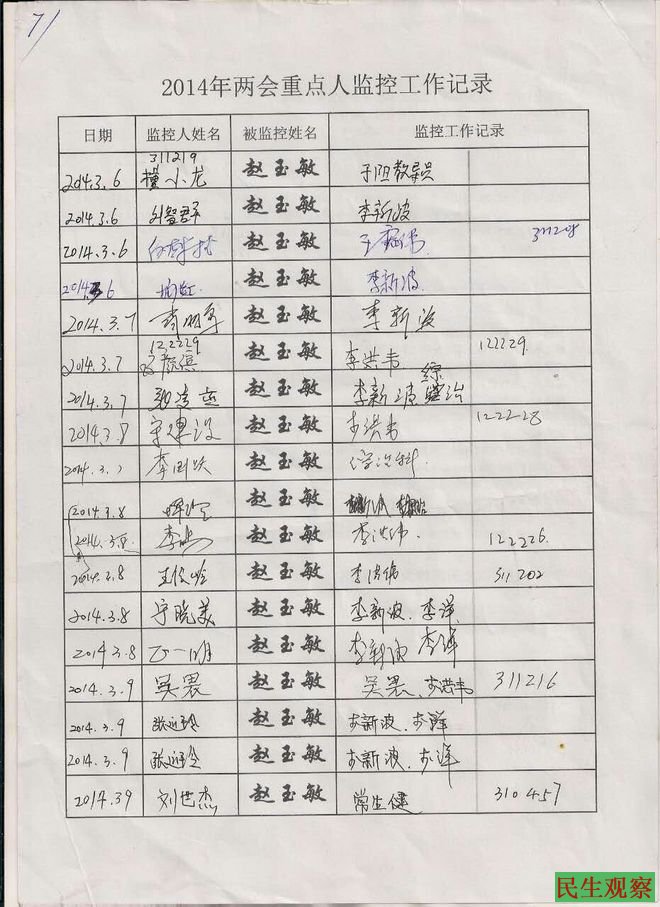 71
2014年两会重点人监控工作记录
日期 监控人姓名 被监控姓名 监控工作记录
311219
2014.3.6 小龙 赵玉敏
2014.3.6 赵玉敏 李新波
2014.3.6 赵玉敏 311208
2014.3.6 赵玉敏 李新波
2014.3.7 赵玉敏 李新波
122229
2014.3.7 赵玉敏 李洪韦 122229
2014.3.7 赵玉敏 李新波 综治
2014.3.8 宋建设 赵玉敏 李洪韦 122228
2014.3.7 赵玉敏
2014.3.8 赵玉敏
2014.3.8 赵玉敏 李洪伟 122226
2014.3.8 王俊岭 赵玉敏 李洪伟 311202
2014.3.8 宁晓美 赵玉敏 李新波、李洋
2014.3.8 赵玉敏 李新波 李洋
2014.3.9 吴畏 赵玉敏 吴畏、李洪韦 311216
2014.3.9 赵玉敏 李新波、李洋
2014.3.9 赵玉敏 李新波、李洋
2014.3.9 刘世杰 赵玉敏 常生健 310457
民生观察